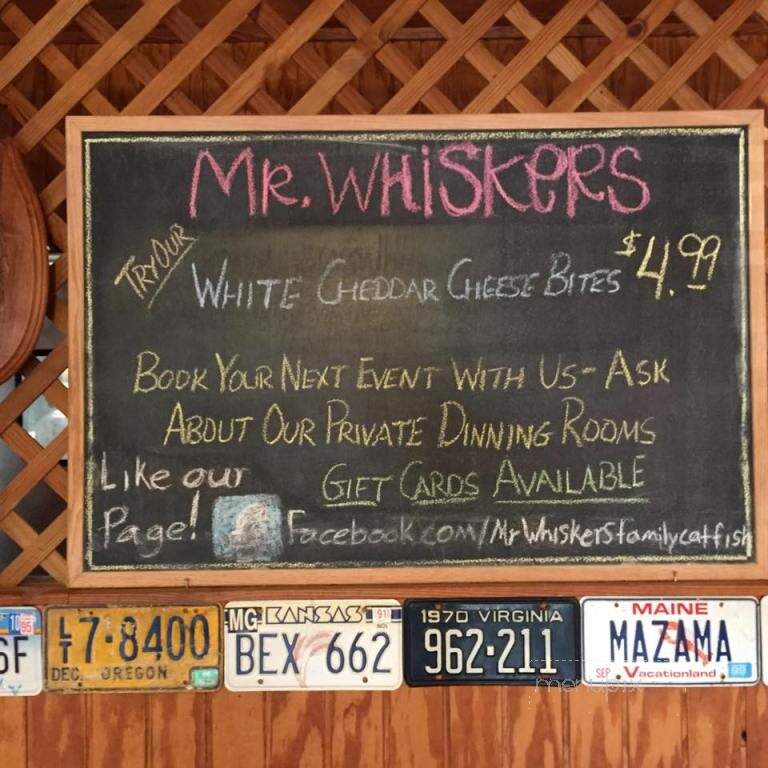 MR. WHISKERS
TRY OUR
WHITE CHEDDAR CHEESE BITES $4.99
BOOK YOUR NEXT EVENT WITH US- ASK
ABOUT OUR PRIVATE DINNING ROOMS
GIFT CARDS AVAILABLE
Like our
Page!
f
Facebook.com/MrWhiskersfamilycatfish
10 95
6F
LT 7·8400
DEC OREGON
MG KANSAS 91
BEX 662
1970 VIRGINIA
962·211
MAINE
MAZAMA
SEP Vacationland